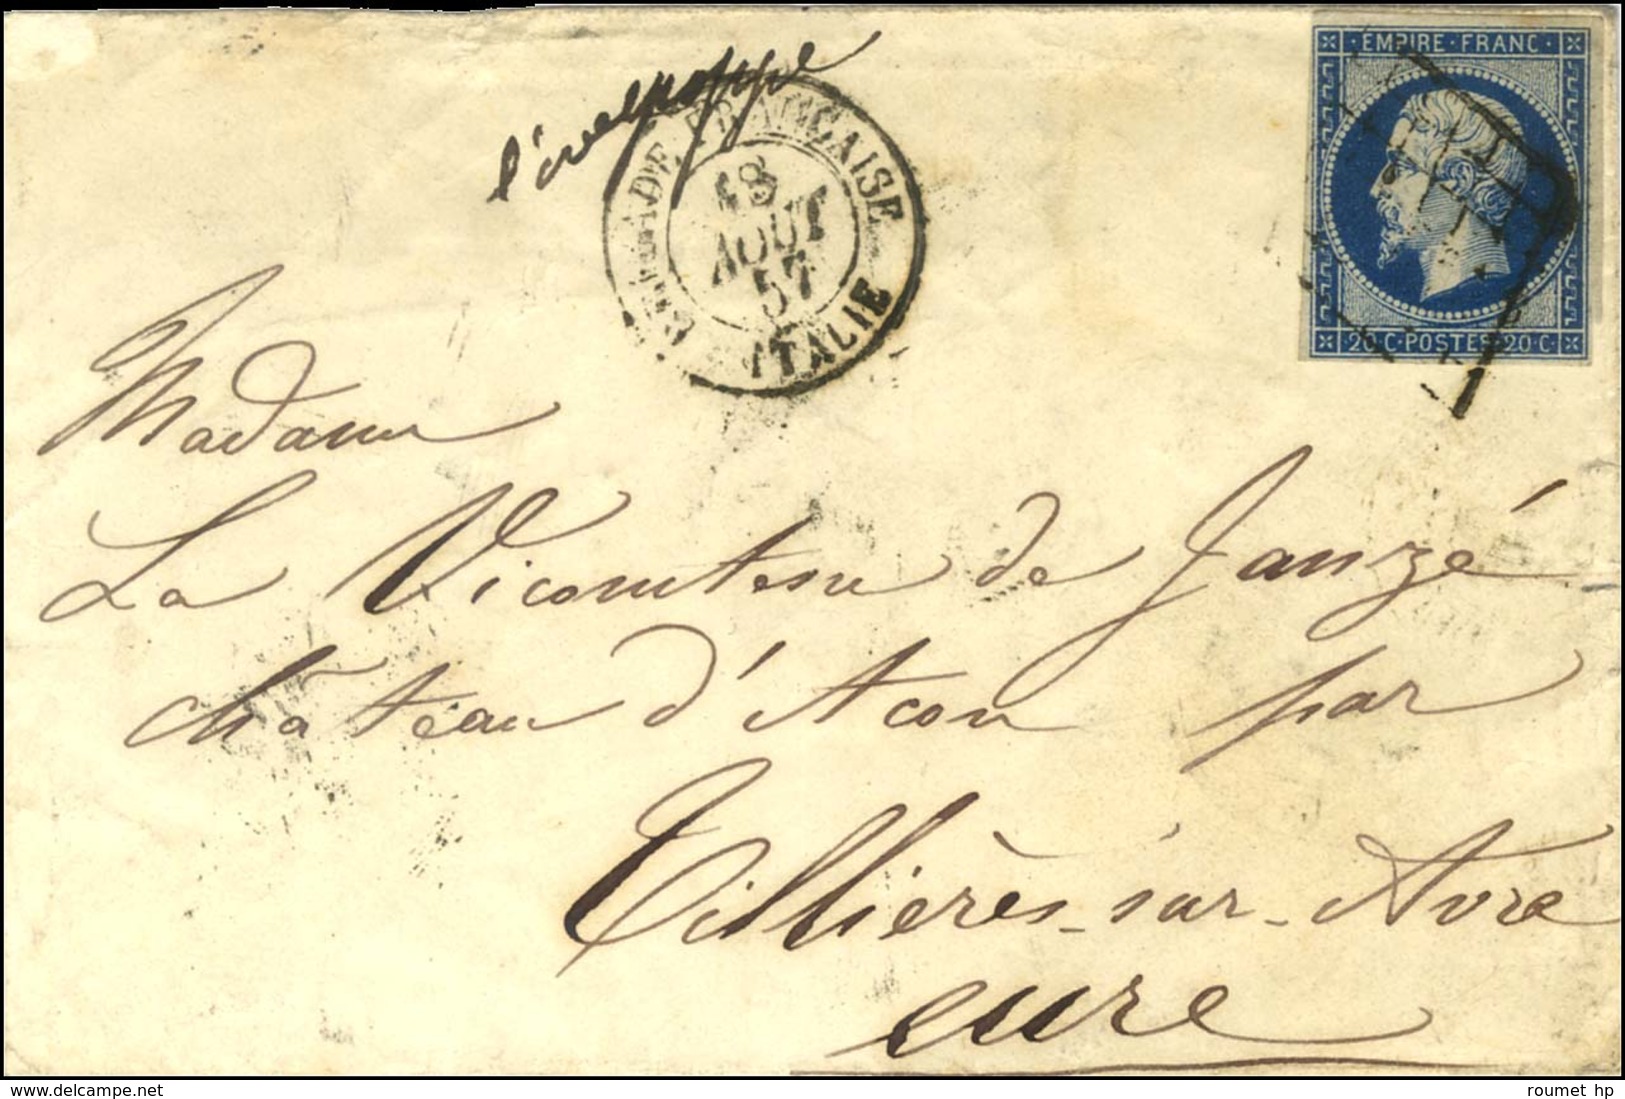 l'enveloppe
BRIGADE FRANÇAISE
18
AOUT
57
ITALIE
EMPIRE · FRANC ·
20 · C · POSTES · 20 · C ·
Madame
La Vicomtesse de Janzé
château d'Acon par
Tillières-sur-Avre
eure
delcampe.net
roumet hp